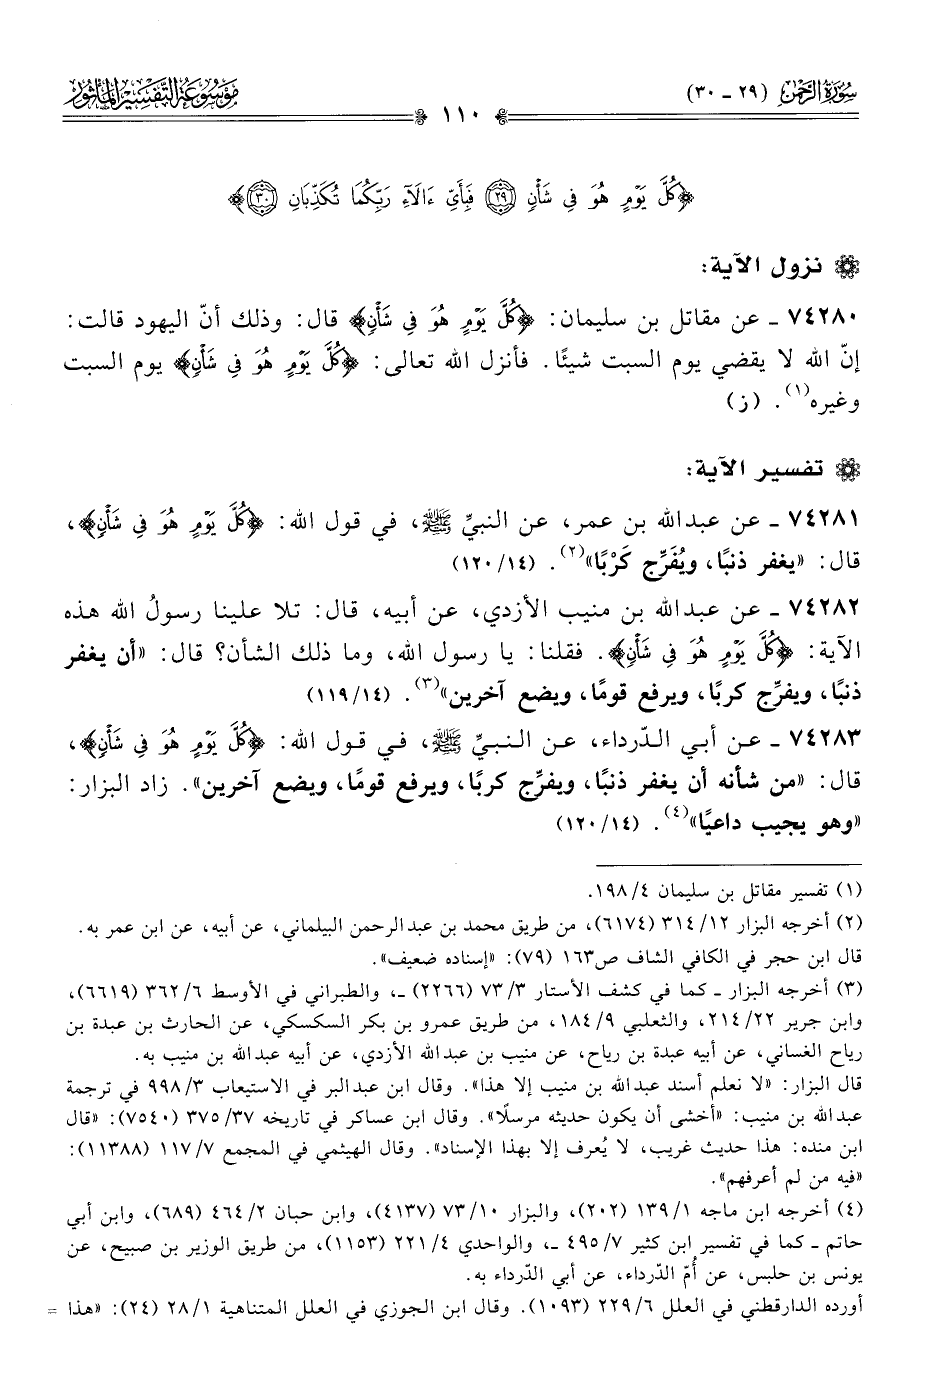 سورة الرحمن (٢٩ - ٣٠)
موسوعة التفسير المأثور
١١٠
﴿كُلَّ يَوْمٍ هُوَ فِي شَأْنٍ ٢٩ فَبِأَيِّ ءَالَآءِ رَبِّكُمَا تُكَذِّبَانِ ٣٠﴾
نزول الآية:
٧٤٢٨٠ ـ عن مقاتل بن سليمان: ﴿كُلَّ يَوْمٍ هُوَ فِي شَأْنٍ﴾ قال: وذلك أنّ اليهود قالت:
إنّ الله لا يقضي يوم السبت شيئًا. فأنزل الله تعالى: ﴿كُلَّ يَوْمٍ هُوَ فِي شَأْنٍ﴾ يوم السبت
وغيره(١). (ز)
تفسير الآية:
٧٤٢٨١ ـ عن عبدالله بن عمر، عن النبيِّ ﷺ، في قول الله: ﴿كُلَّ يَوْمٍ هُوَ فِي شَأْنٍ﴾،
قال: «يغفر ذنبًا، ويُفَرِّج كَرْبًا»(٢). (١٢٠/١٤)
٧٤٢٨٢ ـ عن عبدالله بن منيب الأزدي، عن أبيه، قال: تلا علينا رسولُ الله هذه
الآية: ﴿كُلَّ يَوْمٍ هُوَ فِي شَأْنٍ﴾. فقلنا: يا رسول الله، وما ذلك الشأن؟ قال: «أن يغفر
ذنبًا، ويفرِّج كربًا، ويرفع قومًا، ويضع آخرين»(٣). (١١٩/١٤)
٧٤٢٨٣ ـ عن أبي الدّرداء، عن النبيِّ ﷺ، في قول الله: ﴿كُلَّ يَوْمٍ هُوَ فِي شَأْنٍ﴾،
قال: «من شأنه أن يغفر ذنبًا، ويفرِّج كربًا، ويرفع قومًا، ويضع آخرين». زاد البزار:
«وهو يجيب داعيًا»(٤). (١٢٠/١٤)
(١) تفسير مقاتل بن سليمان ١٩٨/٤.
(٢) أخرجه البزار ٣١٤/١٢ (٦١٧٤)، من طريق محمد بن عبدالرحمن البيلماني، عن أبيه، عن ابن عمر به.
قال ابن حجر في الكافي الشاف ص١٦٣ (٧٩): «إسناده ضعيف».
(٣) أخرجه البزار ـ كما في كشف الأستار ٧٣/٣ (٢٢٦٦) ـ، والطبراني في الأوسط ٣٦٢/٦ (٦٦١٩)،
وابن جرير ٢١٤/٢٢، والثعلبي ١٨٤/٩، من طريق عمرو بن بكر السكسكي، عن الحارث بن عبدة بن
رياح الغساني، عن أبيه عبدة بن رياح، عن منيب بن عبدالله الأزدي، عن أبيه عبدالله بن منيب به.
قال البزار: «لا نعلم أسند عبدالله بن منيب إلا هذا». وقال ابن عبدالبر في الاستيعاب ٩٩٨/٣ في ترجمة
عبدالله بن منيب: «أخشى أن يكون حديثه مرسلًا». وقال ابن عساكر في تاريخه ٣٧٥/٣٧ (٧٥٤٠): «قال
ابن منده: هذا حديث غريب، لا يُعرف إلا بهذا الإسناد». وقال الهيثمي في المجمع ١١٧/٧ (١١٣٨٨):
«فيه من لم أعرفهم».
(٤) أخرجه ابن ماجه ١٣٩/١ (٢٠٢)، والبزار ٧٣/١٠ (٤١٣٧)، وابن حبان ٤٦٤/٢ (٦٨٩)، وابن أبي
حاتم ـ كما في تفسير ابن كثير ٤٩٥/٧ ـ، والواحدي ٢٢١/٤ (١١٥٣)، من طريق الوزير بن صبيح، عن
يونس بن حلبس، عن أُمّ الدّرداء، عن أبي الدّرداء به.
أورده الدارقطني في العلل ٢٢٩/٦ (١٠٩٣). وقال ابن الجوزي في العلل المتناهية ٢٨/١ (٢٤): «هذا =